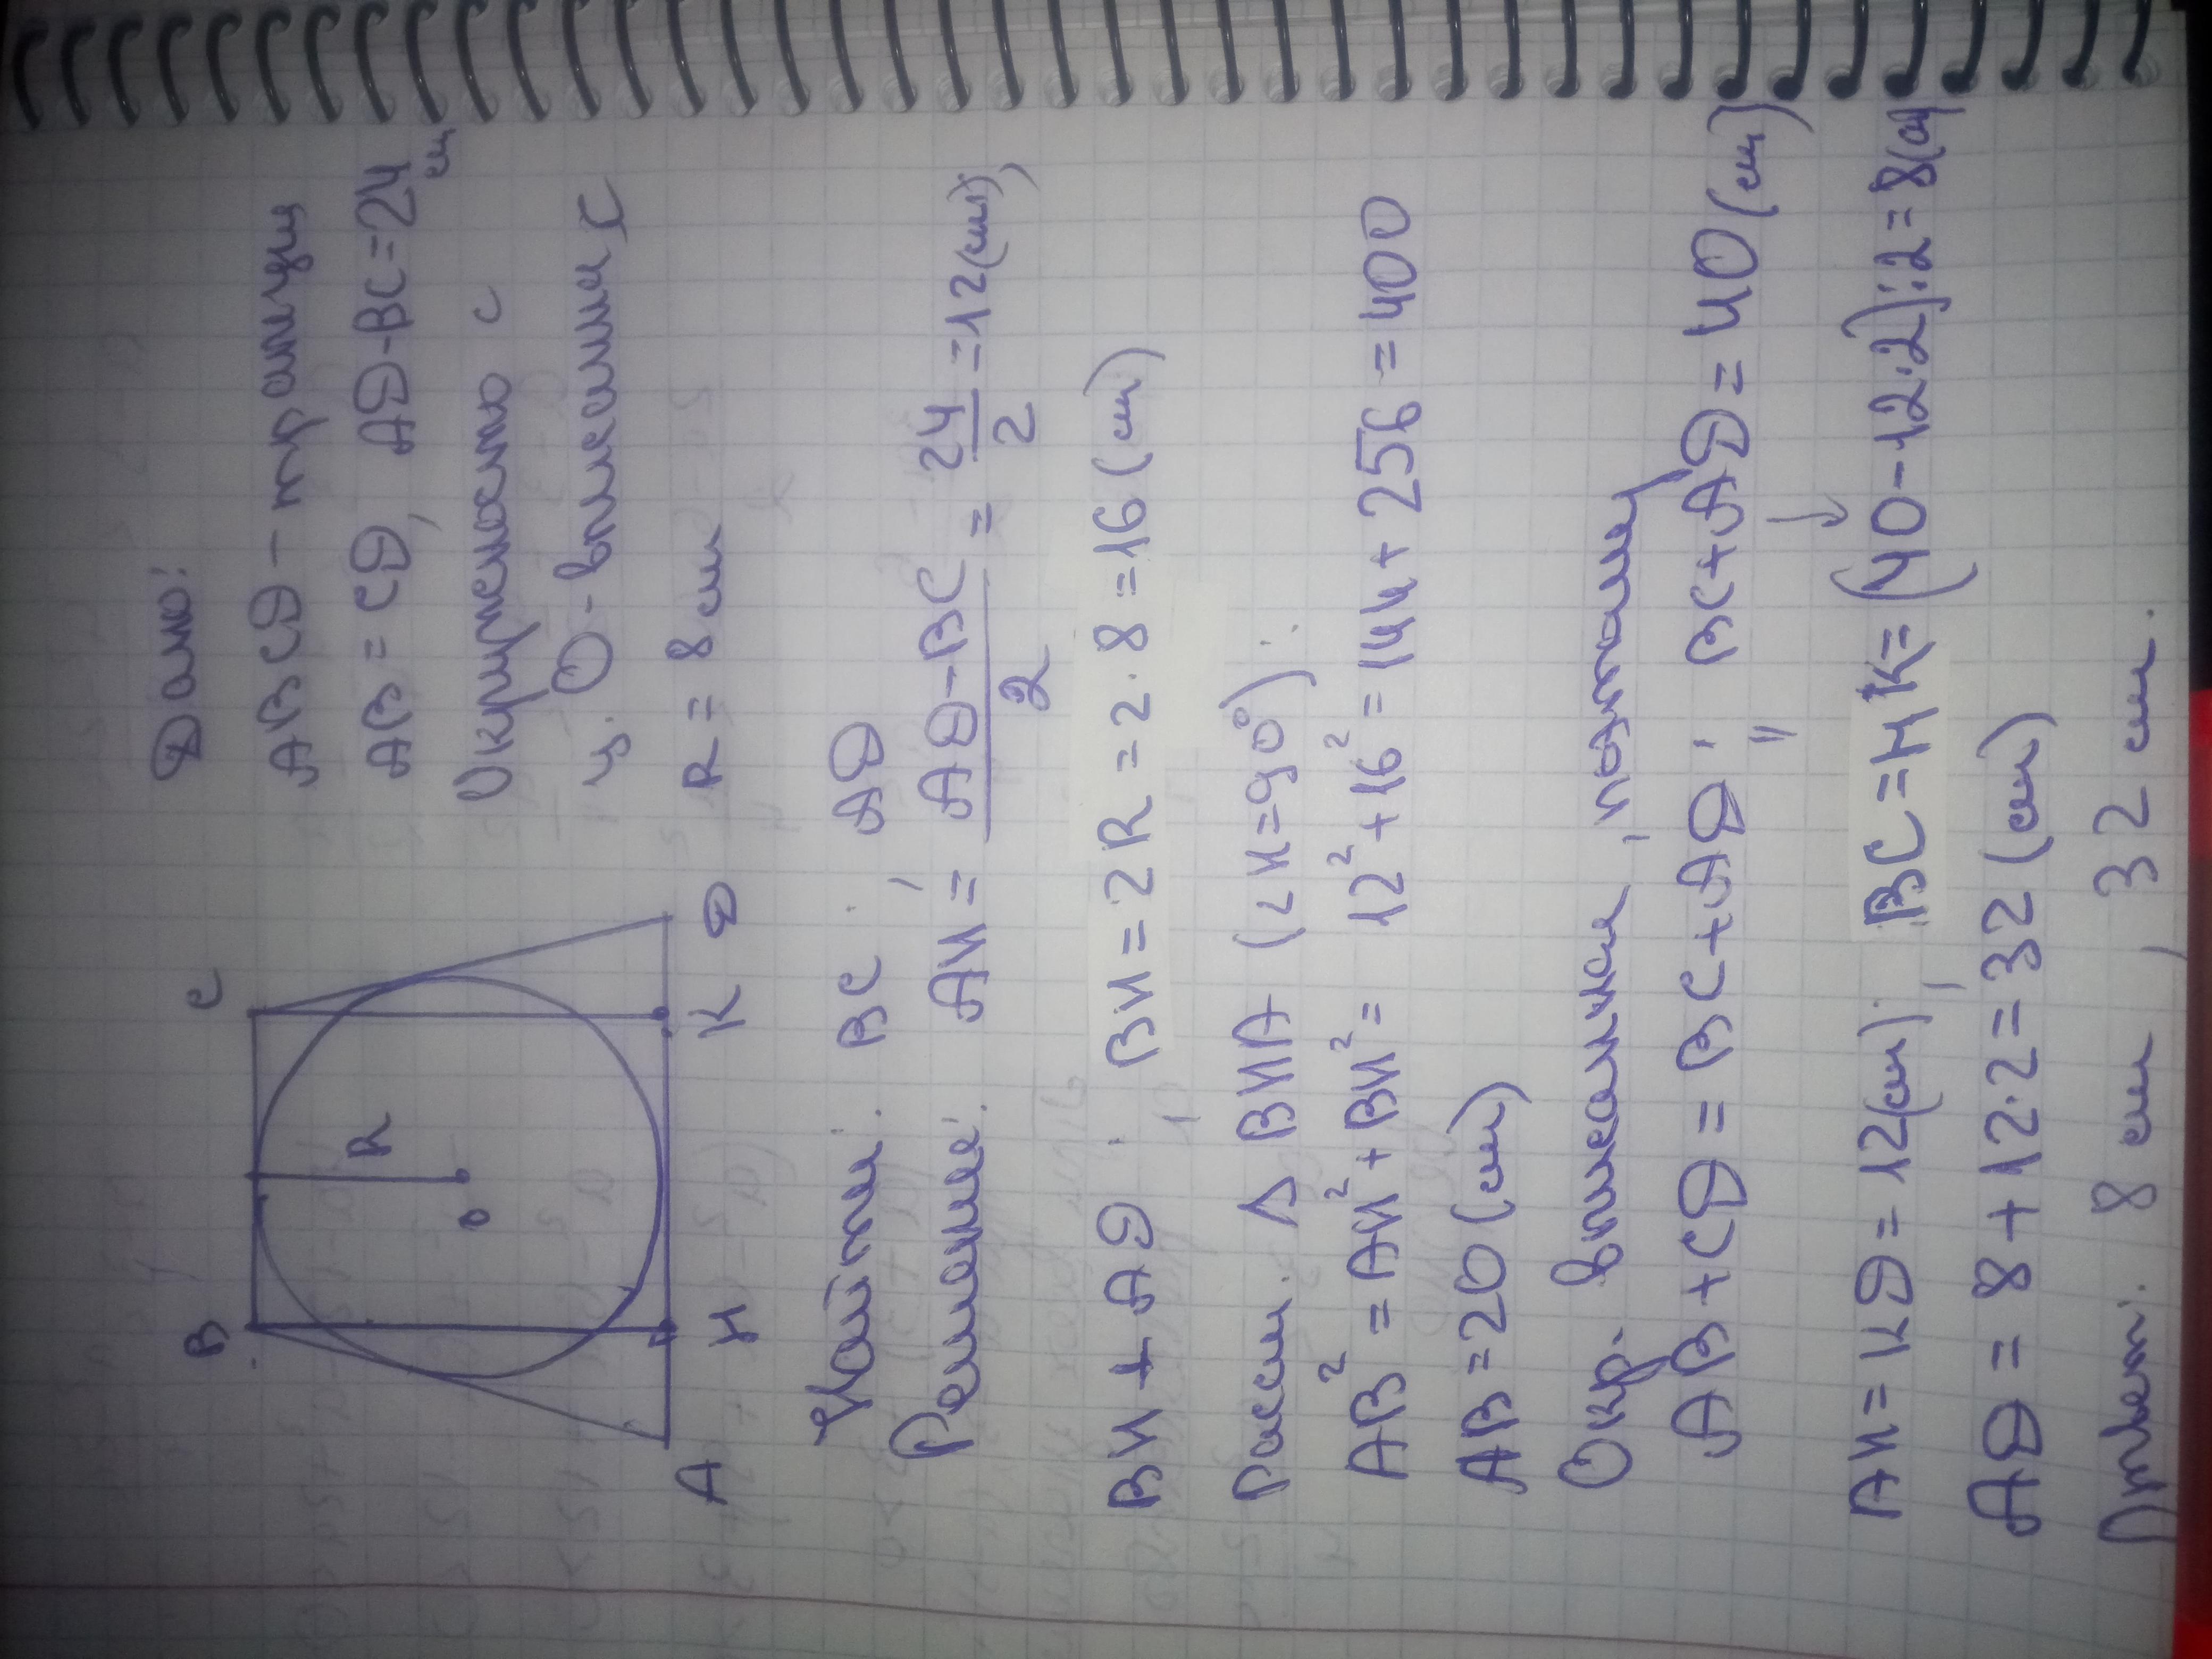 Дано:
ABCD - трапеция
AB = CD, AD-BC=24 см
Окружность с
ц. O - вписанная
R = 8 см
B C
R
O
A H K D
Найти: BC, AD
Решение: AH = AD-BC/2 = 24/2 = 12(см),
BH ⊥ AD, BH = 2R = 2·8 = 16 (см)
Рассм. △ BHA (∠H=90°):
AB² = AH² + BH² = 12² + 16² = 144 + 256 = 400
AB = 20 (см)
Окр. вписанная, поэтому
AB + CD = BC + AD; BC + AD = 40 (см)
AH = KD = 12(см); BC = HK = (40-12·2):2 = 8(см)
AD = 8 + 12·2 = 32 (см)
Ответ: 8 см, 32 см.